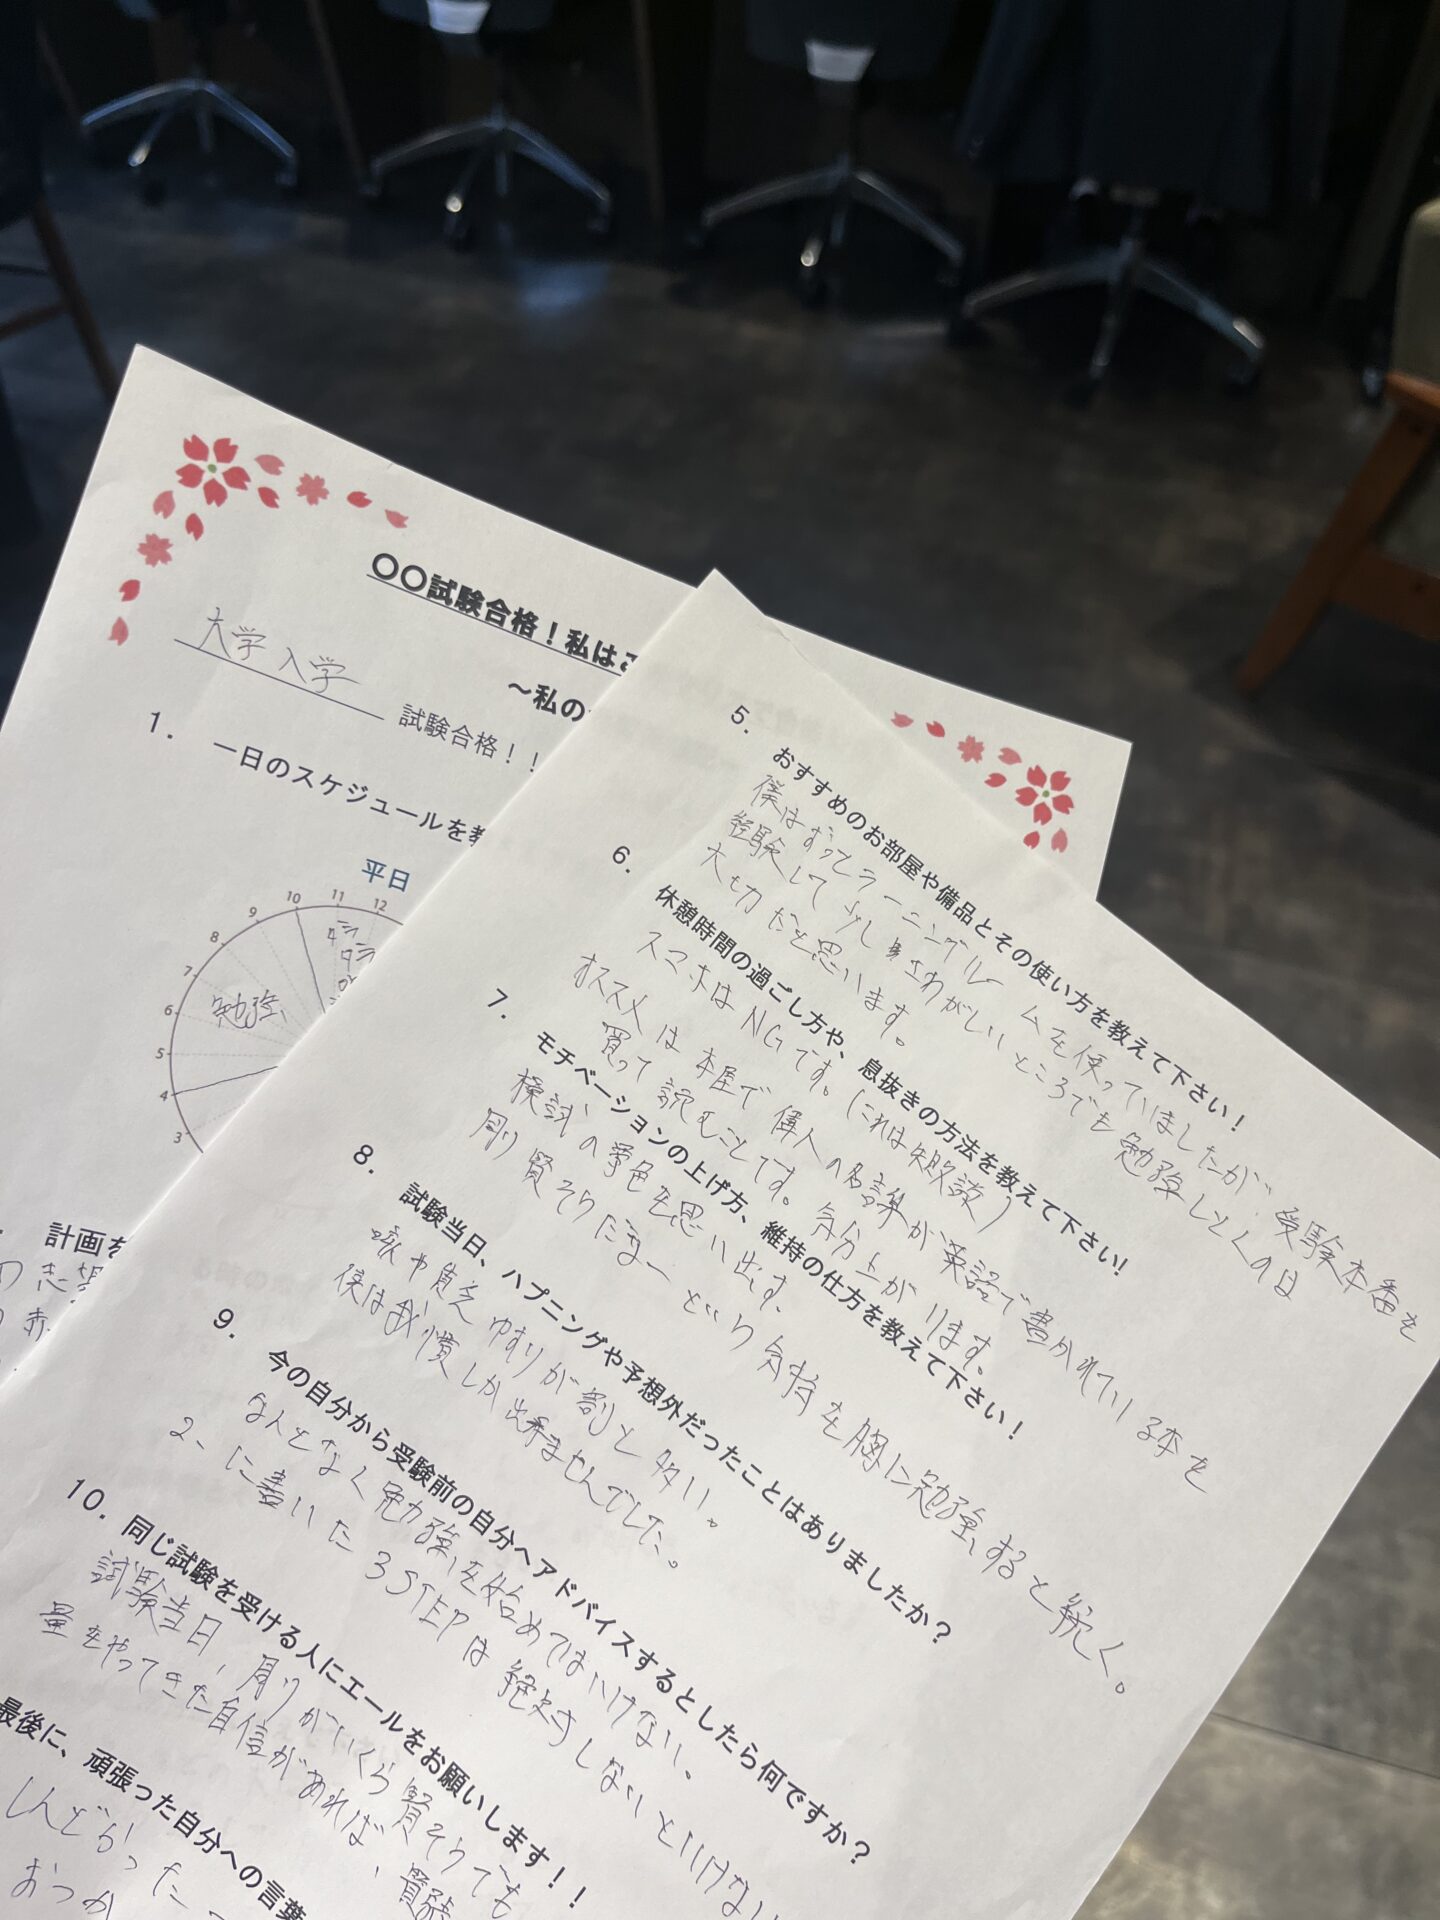 〇〇試験合格！私はこ
～私の
大学入学 試験合格！！
1. 一日のスケジュールを教
平日
10 11 12
9
8
7
6
5
4
3
勉強
計画を
5. おすすめのお部屋や備品とその使い方を教えて下さい！
僕はずっとラーニングルームを使っていましたが、受験本番を
経験して少しさわがしいところでも勉強しとくのは
大切だと思います。
6. 休憩時間の過ごし方や、息抜きの方法を教えて下さい!
スマホはNGです。(これは失敗談)
オススメは本屋で偉人の名言集が英語で書かれている本を
買って読むことです。気分上がります。
7. モチベーションの上げ方、維持の仕方を教えて下さい！
模試の景色を思い出す。
周り賢そうだなーという気持を胸に勉強すると続く。
8. 試験当日、ハプニングや予想外だったことはありましたか？
咳や貧乏ゆすりが割と多い。
僕は我慢しか出来ませんでした。
9. 今の自分から受験前の自分へアドバイスするとしたら何ですか？
なんとなく勉強を始めてはいけない。
2.に書いた3STEPは絶対しないといけない
10. 同じ試験を受ける人にエールをお願いします！！
試験当日、周りがいくら賢そうでも
量をやってきた自信があれば、
最後に、頑張った自分への言葉
しんどかったー
おつか